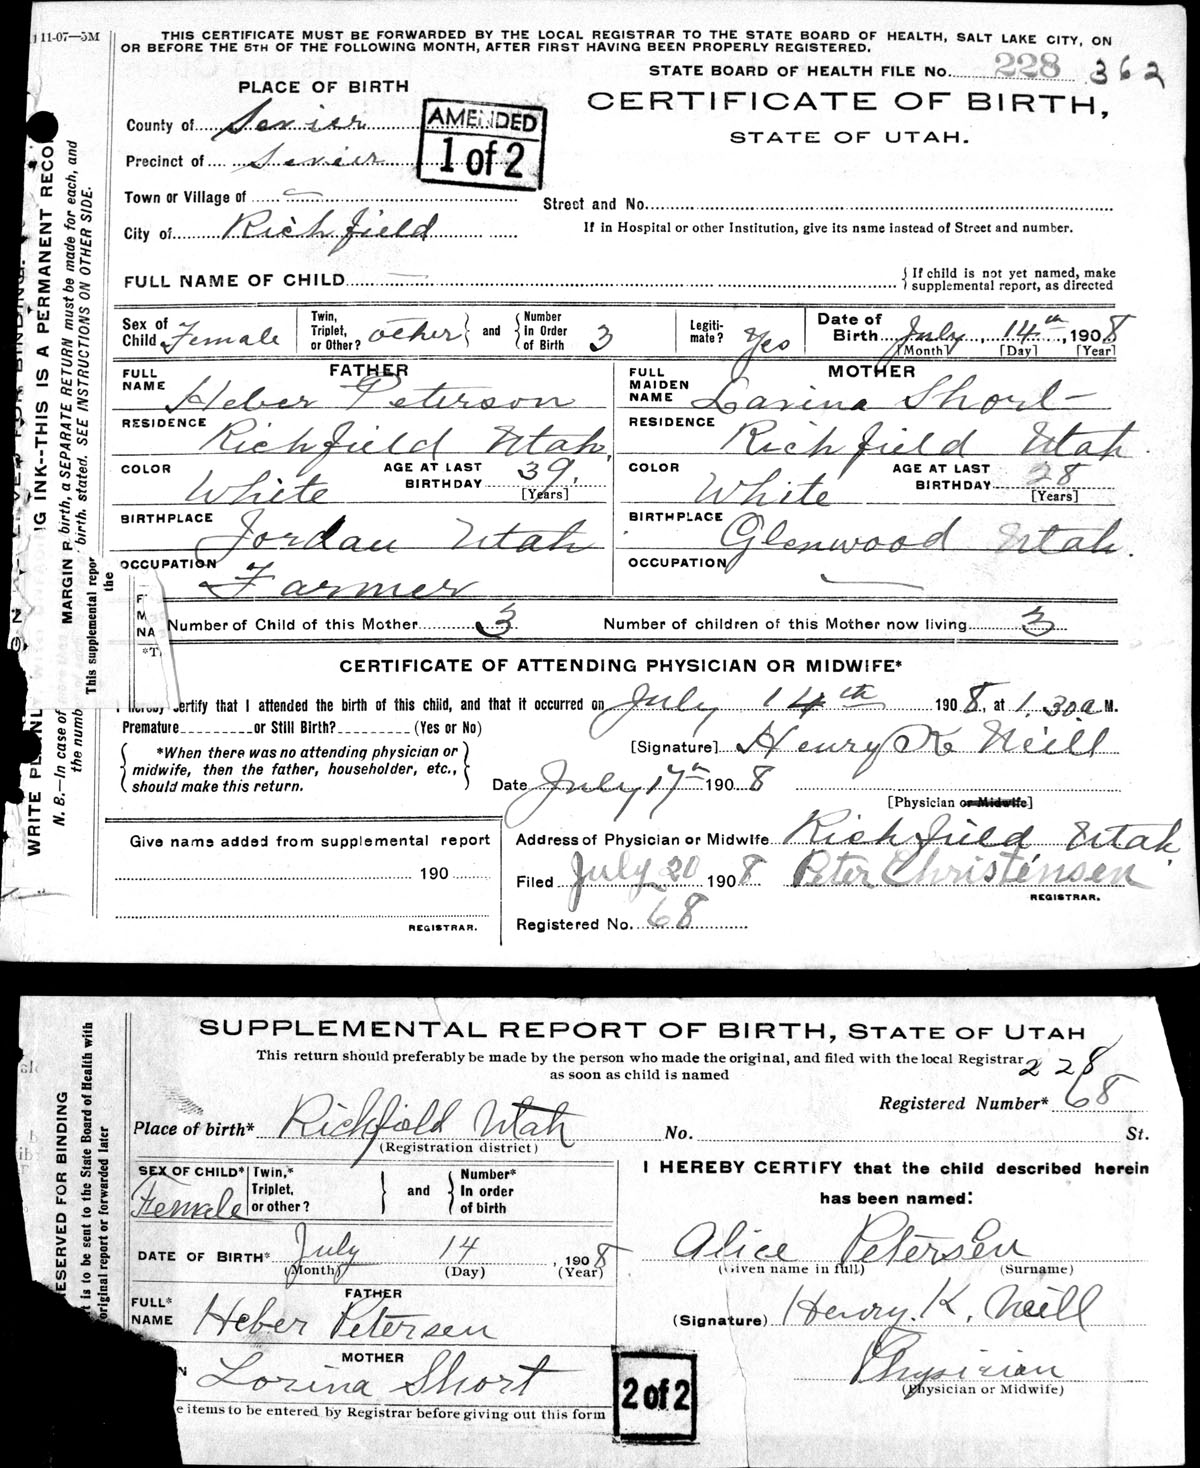 11-07—5M
THIS CERTIFICATE MUST BE FORWARDED BY THE LOCAL REGISTRAR TO THE STATE BOARD OF HEALTH, SALT LAKE CITY, ON
OR BEFORE THE 5TH OF THE FOLLOWING MONTH, AFTER FIRST HAVING BEEN PROPERLY REGISTERED.
STATE BOARD OF HEALTH FILE No. 228 362
PLACE OF BIRTH
CERTIFICATE OF BIRTH,
STATE OF UTAH.
AMENDED
1 of 2
County of Sevier
Precinct of Sevier
Town or Village of —
Street and No.
City of Richfield
If in Hospital or other Institution, give its name instead of Street and number.
FULL NAME OF CHILD — { If child is not yet named, make
supplemental report, as directed
Sex of Child Female Twin, Triplet, or Other? other and Number In Order of Birth 3 Legiti-mate? Yes Date of Birth July 14th, 1908
[Month] [Day] [Year]
FATHER MOTHER
FULL NAME Heber Peterson FULL MAIDEN NAME Lavina Short
RESIDENCE Richfield Utah. RESIDENCE Richfield Utah.
COLOR White AGE AT LAST BIRTHDAY 39. [Years] COLOR White AGE AT LAST BIRTHDAY 28 [Years]
BIRTHPLACE Jordan Utah BIRTHPLACE Glenwood Utah.
OCCUPATION Farmer OCCUPATION —
Number of Child of this Mother 3 Number of children of this Mother now living 3
CERTIFICATE OF ATTENDING PHYSICIAN OR MIDWIFE*
I hereby certify that I attended the birth of this child, and that it occurred on July 14th 1908, at 1.30 a M.
Premature or Still Birth? (Yes or No)
*When there was no attending physician or
midwife, then the father, householder, etc.,
should make this return.
[Signature] Henry K Neill
Date July 17th 1908
[Physician or Midwife]
Give name added from supplemental report
190
REGISTRAR.
Address of Physician or Midwife Richfield Utah
Filed July 20 1908 Peter Christensen
REGISTRAR.
Registered No. 68
MARGIN R
birth, a SEPARATE RETURN must be made for each, and
birth, stated. SEE INSTRUCTIONS ON OTHER SIDE.
G INK--THIS IS A PERMANENT RECO
WRITE PLAINL
N. B.—In case of
the numb
This supplemental repor
the
F
M
NA
*T
SUPPLEMENTAL REPORT OF BIRTH, STATE OF UTAH
This return should preferably be made by the person who made the original, and filed with the local Registrar
as soon as child is named
228
Registered Number* 68
Place of birth* Richfield Utah No. St.
(Registration district)
SEX OF CHILD* Female Twin,* Triplet, or other? and Number* In order of birth
DATE OF BIRTH* July 14, 1908
(Month) (Day) (Year)
FATHER
FULL* NAME Heber Petersen
MOTHER
N Lorina Short
e items to be entered by Registrar before giving out this form
I HEREBY CERTIFY that the child described herein
has been named:
Alice Petersen
(Given name in full) (Surname)
(Signature) Henry. K. Neill
Physician
(Physician or Midwife)
2 of 2
ESERVED FOR BINDING
rt is to be sent to the State Board of Health with
original report or forwarded later